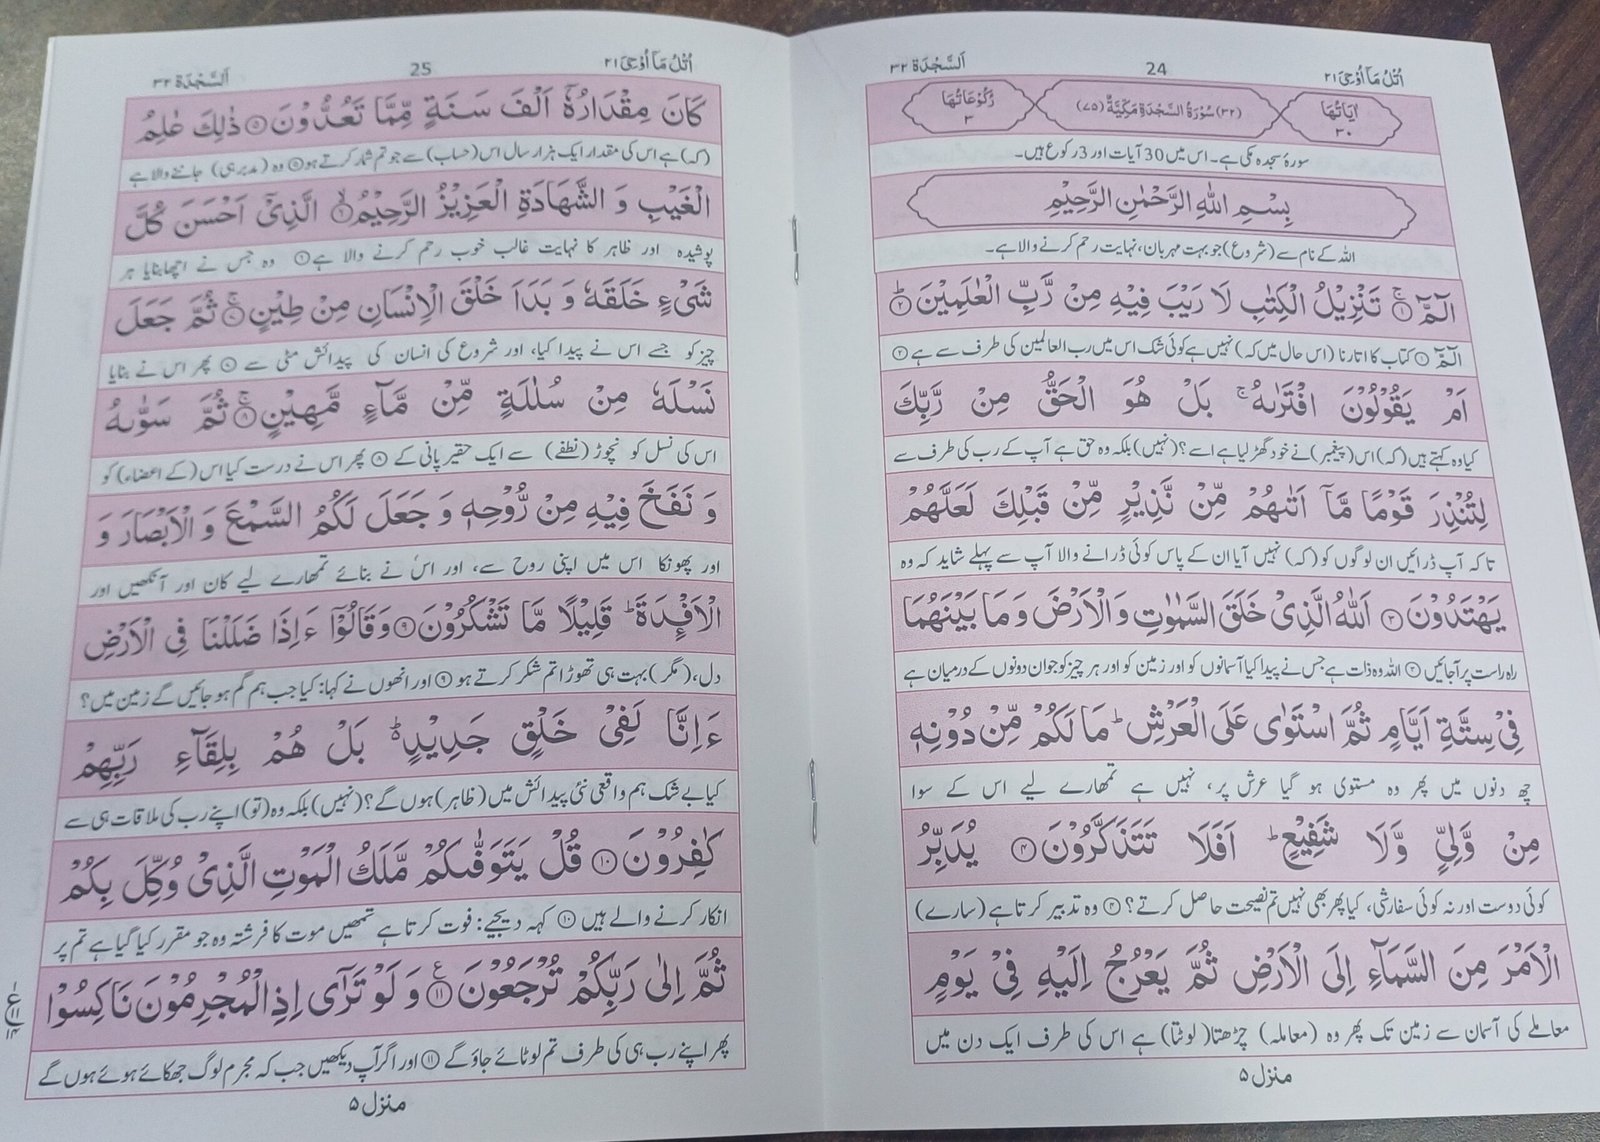 اُتْلُ مَاۤ اُوْحِیَ ۲۱
24
اَلسَّجْدَة ۳۲
اٰیَاتُهَا ۳۰
(۳۲) سُوْرَةُ السَّجْدَةِ مَكِّيَّةٌ (۷۵)
رُكُوْعَاتُهَا ۳
سورۂ سجدہ مکی ہے۔ اس میں 30 آیات اور 3 رکوع ہیں۔
بِسْمِ اللّٰهِ الرَّحْمٰنِ الرَّحِيْمِ
اللہ کے نام سے (شروع) جو بہت مہربان، نہایت رحم کرنے والا ہے۔
الٓمّٓ ۚ۝۱ تَنْزِيْلُ الْكِتٰبِ لَا رَيْبَ فِيْهِ مِنْ رَّبِّ الْعٰلَمِيْنَ ؕ۝۲
الٓمّٓ ۝۱ کتاب کا اتارنا (اس حال میں کہ) نہیں ہے کوئی شک اس میں رب العالمین کی طرف سے ہے ۝۲
اَمْ يَقُوْلُوْنَ افْتَرٰىهُ ۚ بَلْ هُوَ الْحَقُّ مِنْ رَّبِّكَ
کیا وہ کہتے ہیں (کہ) اس (پیغمبر) نے خود گھڑ لیا ہے اسے؟ (نہیں) بلکہ وہ حق ہے آپ کے رب کی طرف سے
لِتُنْذِرَ قَوْمًا مَّاۤ اَتٰىهُمْ مِّنْ نَّذِيْرٍ مِّنْ قَبْلِكَ لَعَلَّهُمْ
تا کہ آپ ڈرائیں ان لوگوں کو (کہ) نہیں آیا ان کے پاس کوئی ڈرانے والا آپ سے پہلے شاید کہ وہ
يَهْتَدُوْنَ ۝۳ اَللّٰهُ الَّذِيْ خَلَقَ السَّمٰوٰتِ وَ الْاَرْضَ وَ مَا بَيْنَهُمَا
راہ راست پر آجائیں ۝۳ اللہ وہ ذات ہے جس نے پیدا کیا آسمانوں کو اور زمین کو اور ہر چیز کو جو ان دونوں کے درمیان ہے
فِيْ سِتَّةِ اَيَّامٍ ثُمَّ اسْتَوٰى عَلَى الْعَرْشِ ؕ مَا لَكُمْ مِّنْ دُوْنِهٖ
چھ دنوں میں پھر وہ مستوی ہو گیا عرش پر، نہیں ہے تمھارے لیے اس کے سوا
مِنْ وَّلِيٍّ وَّلَا شَفِيْعٍ ؕ اَفَلَا تَتَذَكَّرُوْنَ ۝۴ يُدَبِّرُ
کوئی دوست اور نہ کوئی سفارشی، کیا پھر بھی نہیں تم نصیحت حاصل کرتے؟ ۝۴ وہ تدبیر کرتا ہے (سارے)
الْاَمْرَ مِنَ السَّمَآءِ اِلَى الْاَرْضِ ثُمَّ يَعْرُجُ اِلَيْهِ فِيْ يَوْمٍ
معاملے کی آسمان سے زمین تک پھر وہ (معاملہ) چڑھتا (لوٹتا) ہے اس کی طرف ایک دن میں
منزل ۵
اُتْلُ مَاۤ اُوْحِیَ ۲۱
25
اَلسَّجْدَة ۳۲
كَانَ مِقْدَارُهٗۤ اَلْفَ سَنَةٍ مِّمَّا تَعُدُّوْنَ ۝۵ ذٰلِكَ عٰلِمُ
(کہ) ہے اس کی مقدار ایک ہزار سال اس (حساب) سے جو تم شمار کرتے ہو ۝۵ وہ (مدبر ہی) جاننے والا ہے
الْغَيْبِ وَ الشَّهَادَةِ الْعَزِيْزُ الرَّحِيْمُ ۙ۝۶ الَّذِيْۤ اَحْسَنَ كُلَّ
پوشیدہ اور ظاہر کا نہایت غالب خوب رحم کرنے والا ہے ۝۶ وہ جس نے اچھا بنایا ہر
شَيْءٍ خَلَقَهٗ وَ بَدَاَ خَلْقَ الْاِنْسَانِ مِنْ طِيْنٍ ۚ۝۷ ثُمَّ جَعَلَ
چیز کو جسے اس نے پیدا کیا، اور شروع کی انسان کی پیدائش مٹی سے ۝۷ پھر اس نے بنایا
نَسْلَهٗ مِنْ سُلٰلَةٍ مِّنْ مَّآءٍ مَّهِيْنٍ ۚ۝۸ ثُمَّ سَوّٰىهُ
اس کی نسل کو نچوڑ (نطفے) سے ایک حقیر پانی کے ۝۸ پھر اس نے درست کیا اس (کے اعضاء) کو
وَ نَفَخَ فِيْهِ مِنْ رُّوْحِهٖ وَ جَعَلَ لَكُمُ السَّمْعَ وَ الْاَبْصَارَ وَ
اور پھونکا اس میں اپنی روح سے، اور اس نے بنائے تمھارے لیے کان اور آنکھیں اور
الْاَفْـِٕدَةَ ؕ قَلِيْلًا مَّا تَشْكُرُوْنَ ۝۹ وَ قَالُوْۤا ءَاِذَا ضَلَلْنَا فِي الْاَرْضِ
دل، (مگر) بہت ہی تھوڑا تم شکر کرتے ہو ۝۹ اور انھوں نے کہا: کیا جب ہم گم ہو جائیں گے زمین میں؟
ءَاِنَّا لَفِيْ خَلْقٍ جَدِيْدٍ ؕ۬ بَلْ هُمْ بِلِقَآءِ رَبِّهِمْ
کیا بے شک ہم واقعی نئی پیدائش میں (ظاہر) ہوں گے؟ (نہیں) بلکہ وہ (تو) اپنے رب کی ملاقات ہی سے
كٰفِرُوْنَ ۝۱۰ قُلْ يَتَوَفّٰىكُمْ مَّلَكُ الْمَوْتِ الَّذِيْ وُكِّلَ بِكُمْ
انکار کرنے والے ہیں ۝۱۰ کہہ دیجیے: فوت کرتا ہے تمھیں موت کا فرشتہ وہ جو مقرر کیا گیا ہے تم پر
ثُمَّ اِلٰى رَبِّكُمْ تُرْجَعُوْنَ ۝۱۱ ع وَ لَوْ تَرٰۤى اِذِ الْمُجْرِمُوْنَ نَاكِسُوْا
پھر اپنے رب ہی کی طرف تم لوٹائے جاؤ گے ۝۱۱ اور اگر آپ دیکھیں جب کہ مجرم لوگ جھکائے ہوئے ہوں گے
منزل ۵